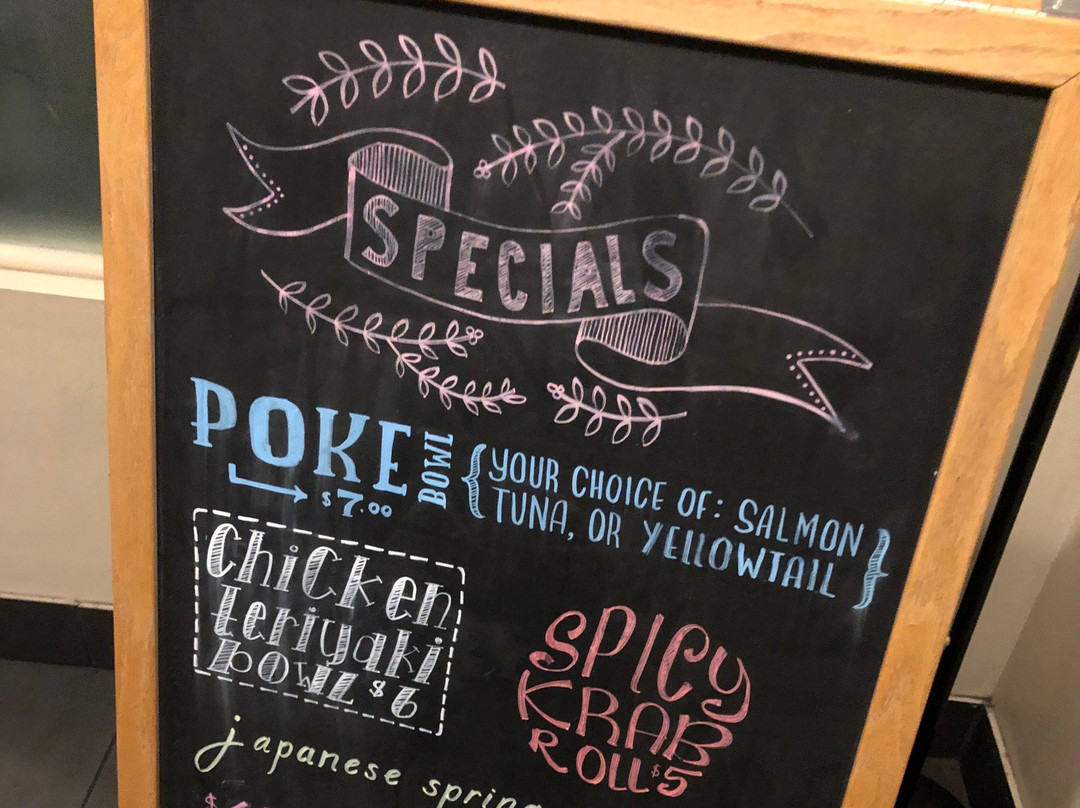 SPECIALS
POKE BOWL
$7.00
{YOUR CHOICE OF: SALMON
TUNA, OR YELLOWTAIL}
Chicken
teriyaki
BOWL $6
SPICY
KRAB
ROLL $5
japanese spring